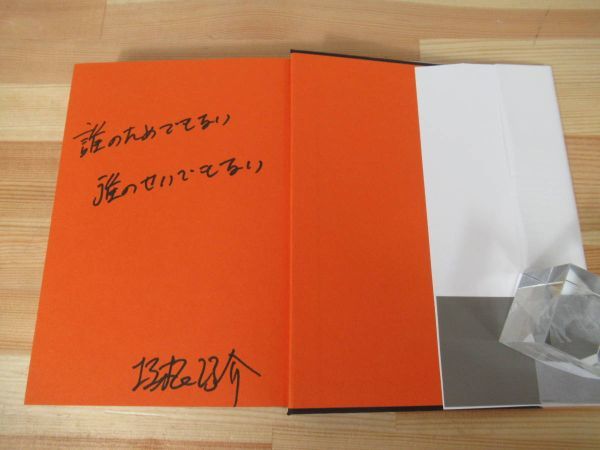 誰のためでもない
誰のせいでもない
垣根涼介